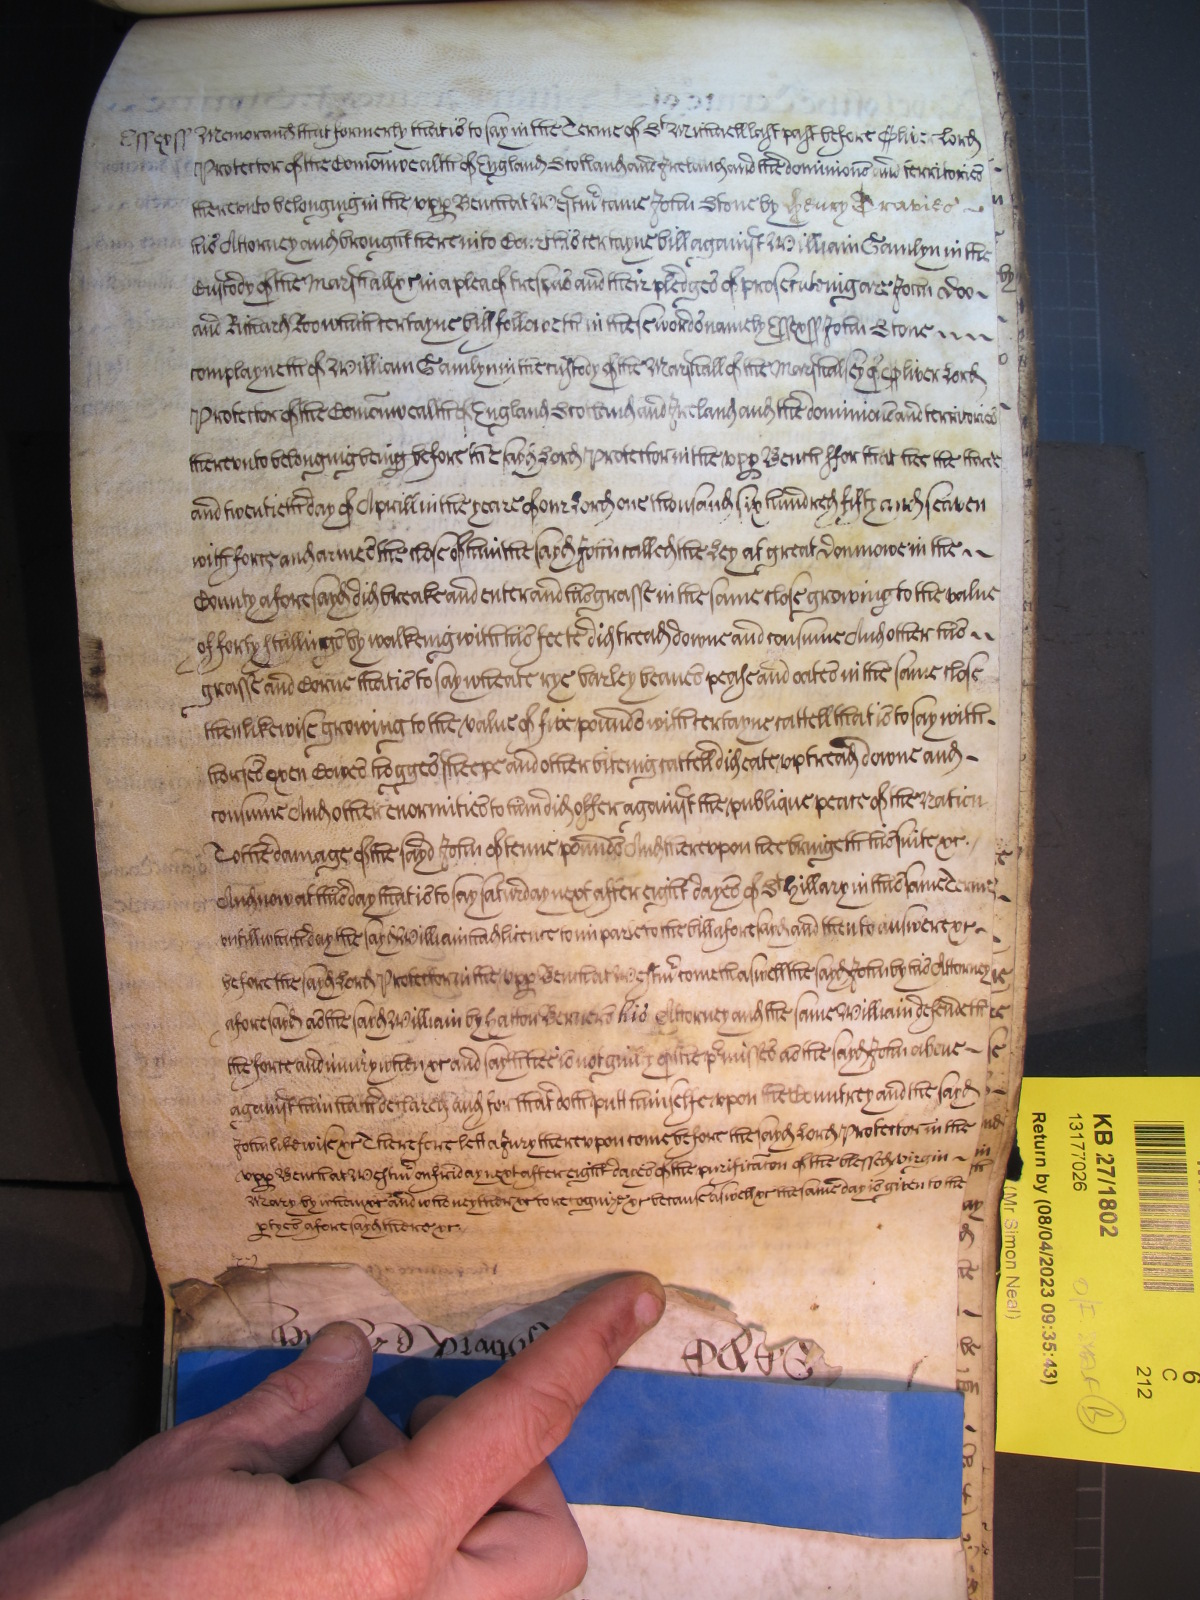 Essex ss Memorand that formerly that is to say in the Terme of St Michaell last past before Oliver Lord
Protector of the Comonwealth of England Scotland and Ireland and the dominions and territories
thereunto belonging in the upp Bench at Westmr came John Stone by Henry Travies
his Attorney and brought here into Court his certayne bill against William Gamlyn in the
Custody of the Marshall &c in a plea of trespas and their pledges of prosecuteing are John Doo
and Richard Roo which certayne bill followeth in these words namely Essex ss John Stone
complayneth of William Gamlyn in the custody of the Marshall of the Marshalsey of Oliver Lord
Protector of the Comonwealth of England Scotland and Ireland and the dominions and territories
thereunto belonging being before the sayd Lord Protector in the upp Bench ffor that hee the three
and twentieth day of Aprill in the yeare of our Lord one thousand six hundred fifty and seaven
with force and armes the close of him the sayd John called the Ley at great Donmowe in the
County aforesayd did breake and enter and his grasse in the same close growing to the value
of forty shillings by walkeing with his feete did tread downe and consume And other his
grasse and Corne that is to say wheate rye barley beanes pease and oates in the same close
then likewise growing to the value of five pounds with certayne cattell that is to say with
horses oxen Cowes hogges sheepe and other biteing cattell did eate up tread downe and
consume And other enormities to him did offer against the publique peace of the Nation
To the damage of the sayd John of tenne pounds And thereupon hee bringeth his suite &c.
And now at this day that is to say saturday next after eight dayes of St hillary in this same Terme
untill which day the sayd William had licence to imparle to the bill aforesayd and then to answere &c
before the sayd Lord Protector in the upp Bench at Westmr cometh aswell the sayd John by his Attorney
aforesayd as the sayd William by Hatton Berners his Attorney and the same William defendeth
the force and iniury when &c and sayth hee is not guilty of the pmisses as the sayd John above
against him hath declared and for that doth putt himselfe upon the Countrey and the sayd
John likewise &c Therefore lett a Jury thereupon come before the sayd Lord Protector in the
upp Bench at Westmr on friday next after eight dayes of the purificacon of the blessed virgin
Mary by whom &c and who neyther &c to recognize &c because aswell &c the same day is given to the
ptyes aforesayd there &c.
KB 27/1802
13177026
Return by (08/04/2023 09:35:43)
(Mr Simon Neal)
6
C
212